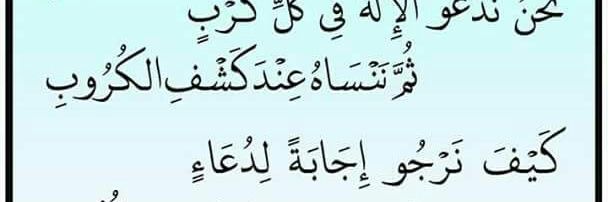 نَحْنُ نَدْعُو الْإِلَهَ فِي كُلِّ كَرْبٍ
ثُمَّ نَنْسَاهُ عِنْدَ كَشْفِ الكُرُوبِ
كَيْفَ نَرْجُو إِجَابَةً لِدُعَاءٍ